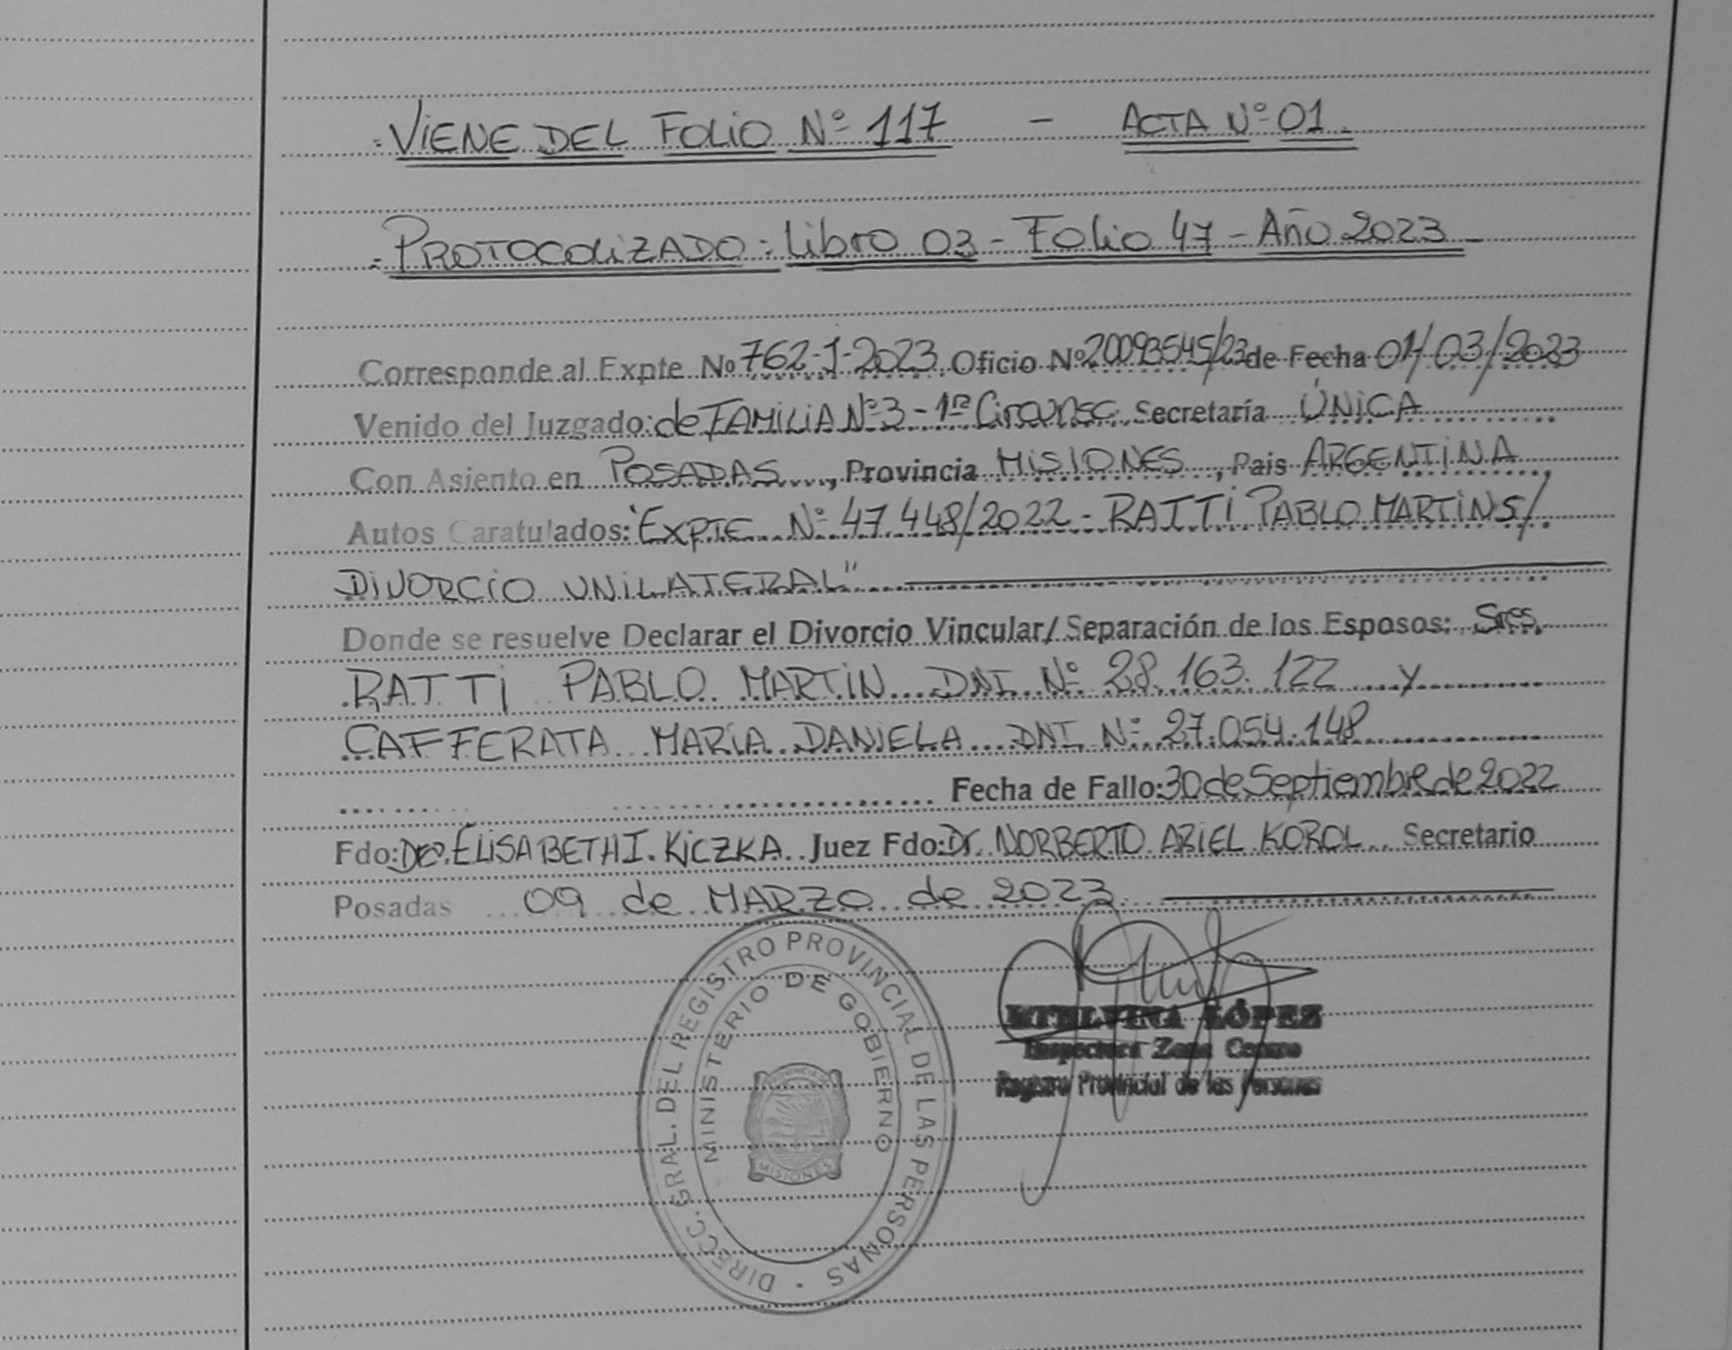 VIENE DEL FOLIO Nº 117 - ACTA Nº 01.
PROTOCOLIZADO: Libro 03 - Folio 47 - Año 2023
Corresponde al Expte Nº 762-J-2023 Oficio Nº 20093545/23 de Fecha 01/03/2023
Venido del Juzgado: de FAMILIA Nº 3 - 1ra Circunsc. Secretaría ÚNICA
Con Asiento en POSADAS, Provincia MISIONES, Pais ARGENTINA
Autos Caratulados: "EXPTE Nº 47.448/2022 - RATTI PABLO MARTIN S/
DIVORCIO UNILATERAL"
Donde se resuelve Declarar el Divorcio Vincular/ Separación de los Esposos: Sres.
RATTI PABLO MARTIN DNI Nº 28.163.122 y
CAFFERATA MARÍA DANIELA DNI Nº 27.054.148
Fecha de Fallo: 30 de Septiembre de 2022
Fdo: Dra. ELISABETH I. KICZKA Juez Fdo: Dr. NORBERTO ARIEL KOROL Secretario
Posadas 09 de MARZO de 2023
DIRECC. GRAL. DEL REGISTRO PROVINCIAL DE LAS PERSONAS
MINISTERIO DE GOBIERNO
MISIONES
LÓPEZ
Inspectora Zona Centro
Registro Provincial de las Personas